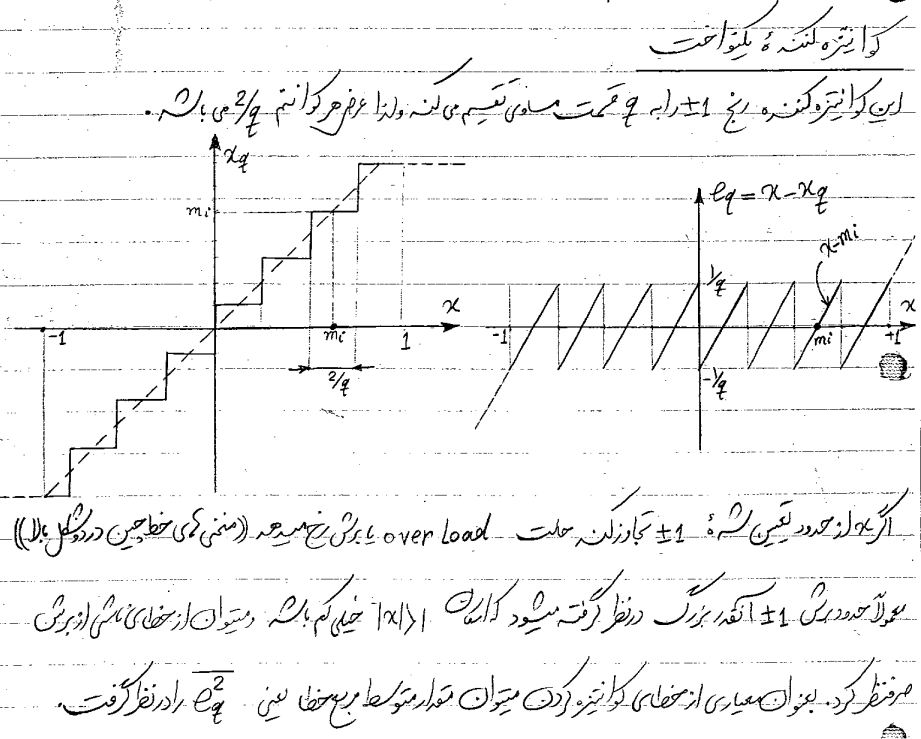 کوانتیزه کننده یکنواخت
این کوانتیزه کننده رنج ±1 را به q قسمت مساوی تقسیم می کند ولذا عرض هر کوانتم 2/q می باشد.
xq
eq = x - xq
mi
x-mi
1/q
-1
mi
1
x
2/q
-1
-1/q
mi
+1
x
اگر x از حدود تعیین شدهٔ ±1 تجاوز کند حالت over load یا برش رخ میدهد ((منحنی های خط چین در دو شکل بالا))
معمولاً حدود برش ±1 آنقدر بزرگ در نظر گرفته میشود که امکان |x|>1 خیلی کم باشد و میتوان از خطای ناشی از برش
صرفنظر کرد. بعنوان معیاری از خطای کوانتیزه کردن میتوان مقدار متوسط مربع خطا یعنی e̅q² را در نظر گرفت.